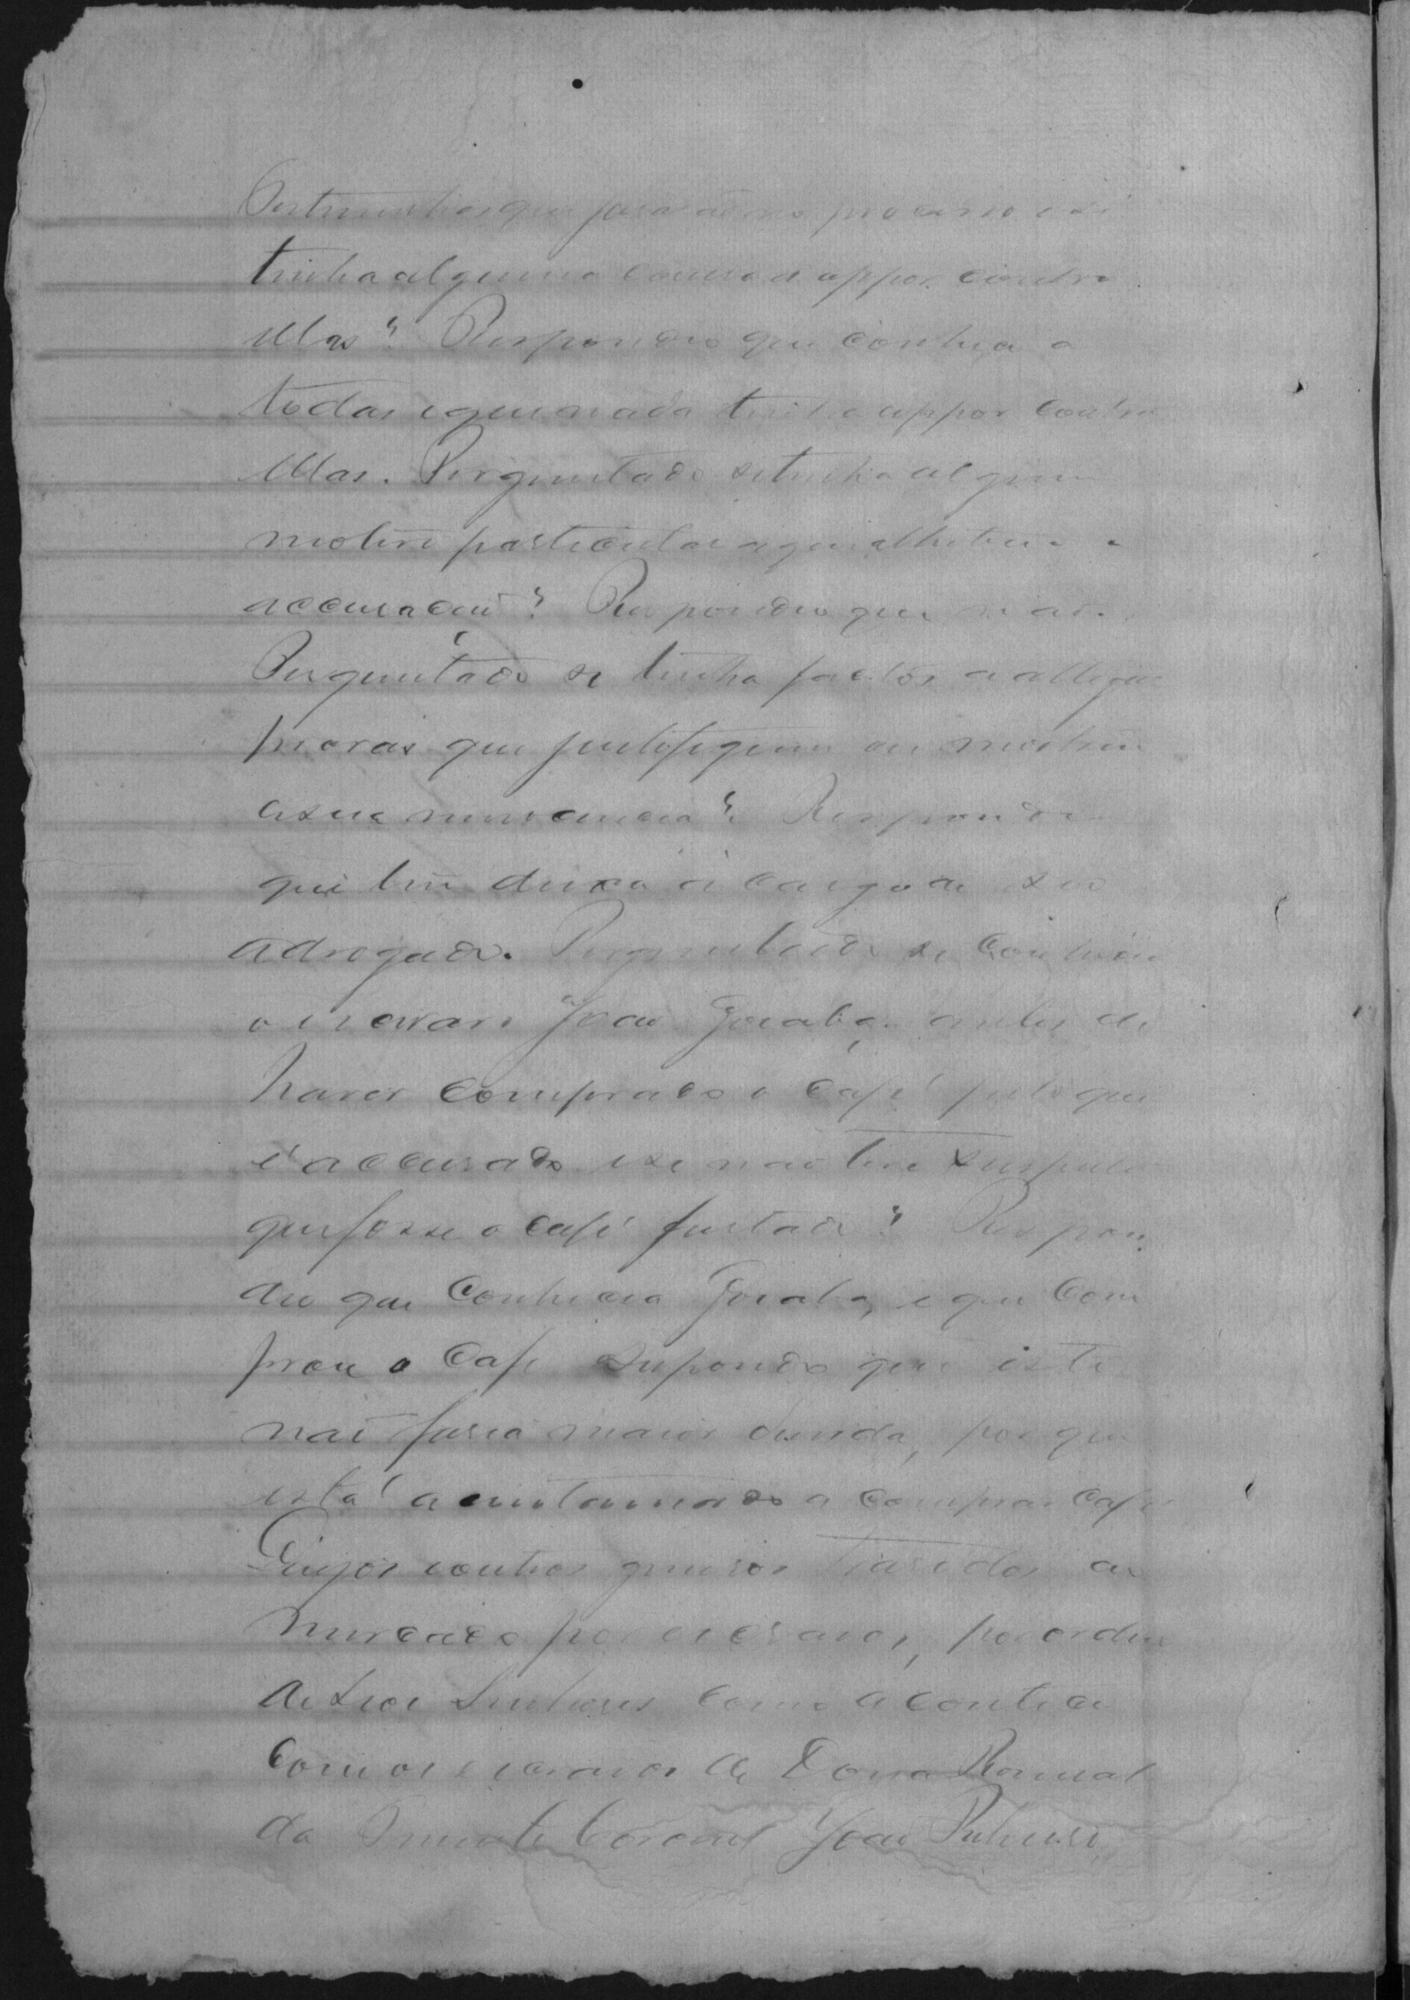 testemunhas que juraram no processo e se
tinha alguma cousa a oppor contra
ellas? Respondeo que conhecia a
todas e que nada tinha a oppor contra
ellas. Perguntado se tinha algum
motivo particular a que attribuia a
accusação? Respondeo que não.
Perguntado se tinha factos a allegar
provas que justifiquem ou mostrem
a sua innocencia? Respondeo
que tem deixa á cargo de seo
advogado. Perguntado se conhecia
o escravo João Goiaba, antes de
haver comprado o café pelo que
é accusado e se não teve suspeita
que fosse o café furtado? Respon
deo que conhecia Goiaba, e que com
prou o café supondo que isto
não fasia maior duvida, por que
está acustumado a comprar café
Queijos e outros generos trasidos ao
mercado por escravos, por ordem
de seos senhores como acontece
com os escravos de Dona Romual
da Tenente Coronel João